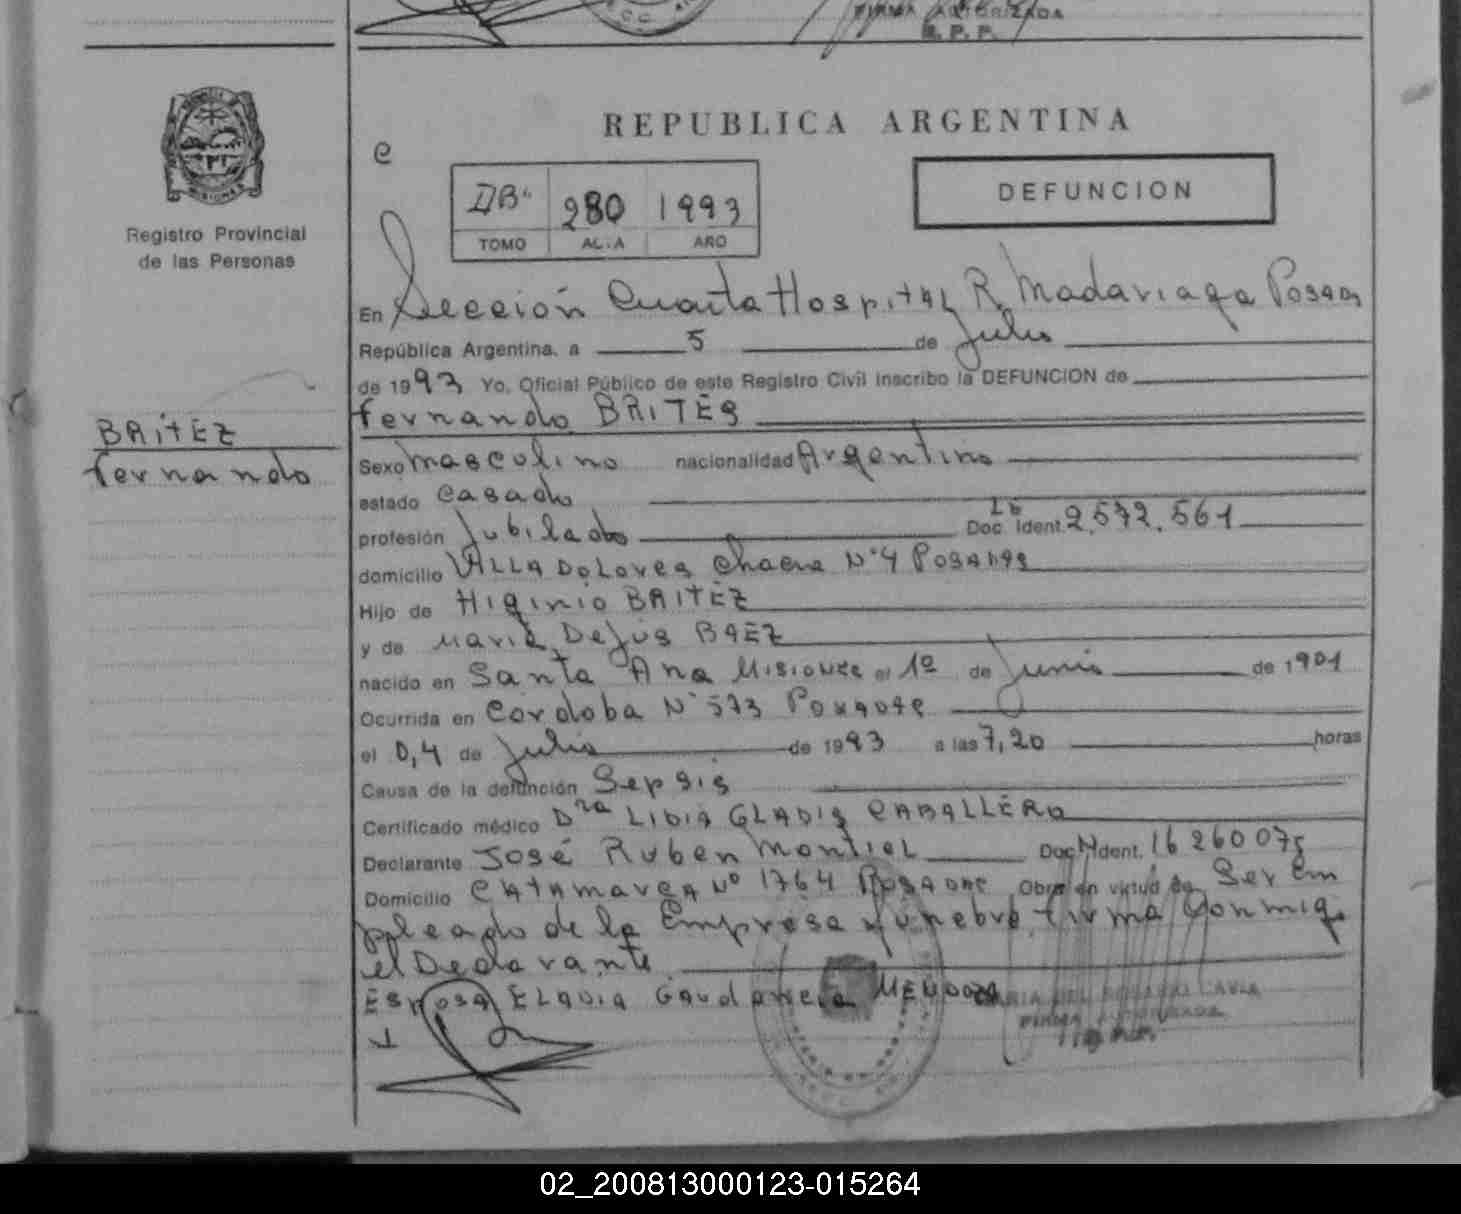 FIRMA AUTORIZADA
R. P. P.
REPUBLICA ARGENTINA
e
DB" 280 1993
TOMO ACTA AÑO
DEFUNCION
Registro Provincial
de las Personas
En Sección Cuarta Hospital R. Madariaga Posadas
República Argentina, a 5 de Julio
de 1993 Yo, Oficial Público de este Registro Civil inscribo la DEFUNCION de
Fernando BRITES
BRITEZ
Fernando
Sexo masculino nacionalidad Argentino
estado Casado
profesión Jubilado Doc. Ident. 2.572.561
domicilio VILLA DOLORES Chacra N°4 Posadas
Hijo de Higinio BRITEZ
y de Maria DeJus BAEZ
nacido en Santa Ana Misiones el 1º de Junio de 1901
Ocurrida en Cordoba N° 573 Posadas
el 0,4 de Julio de 1993 a las 7,20 horas
Causa de la defunción Sepsis
Certificado médico Dra LIDIA GLADIS CABALLERO
Declarante José Ruben Montiel Doc. Ident. 16 260 075
Domicilio CATAMARCA Nº 1764 Posadas Obra en virtud de Ser Em
pleado de la Empresa Funebre. firma Conmigo
el Declarante.
Esposa ELADIA MENDOZA
MARIA DEL ROSARIO
FIRMA AUTORIZADA
02_200813000123-015264